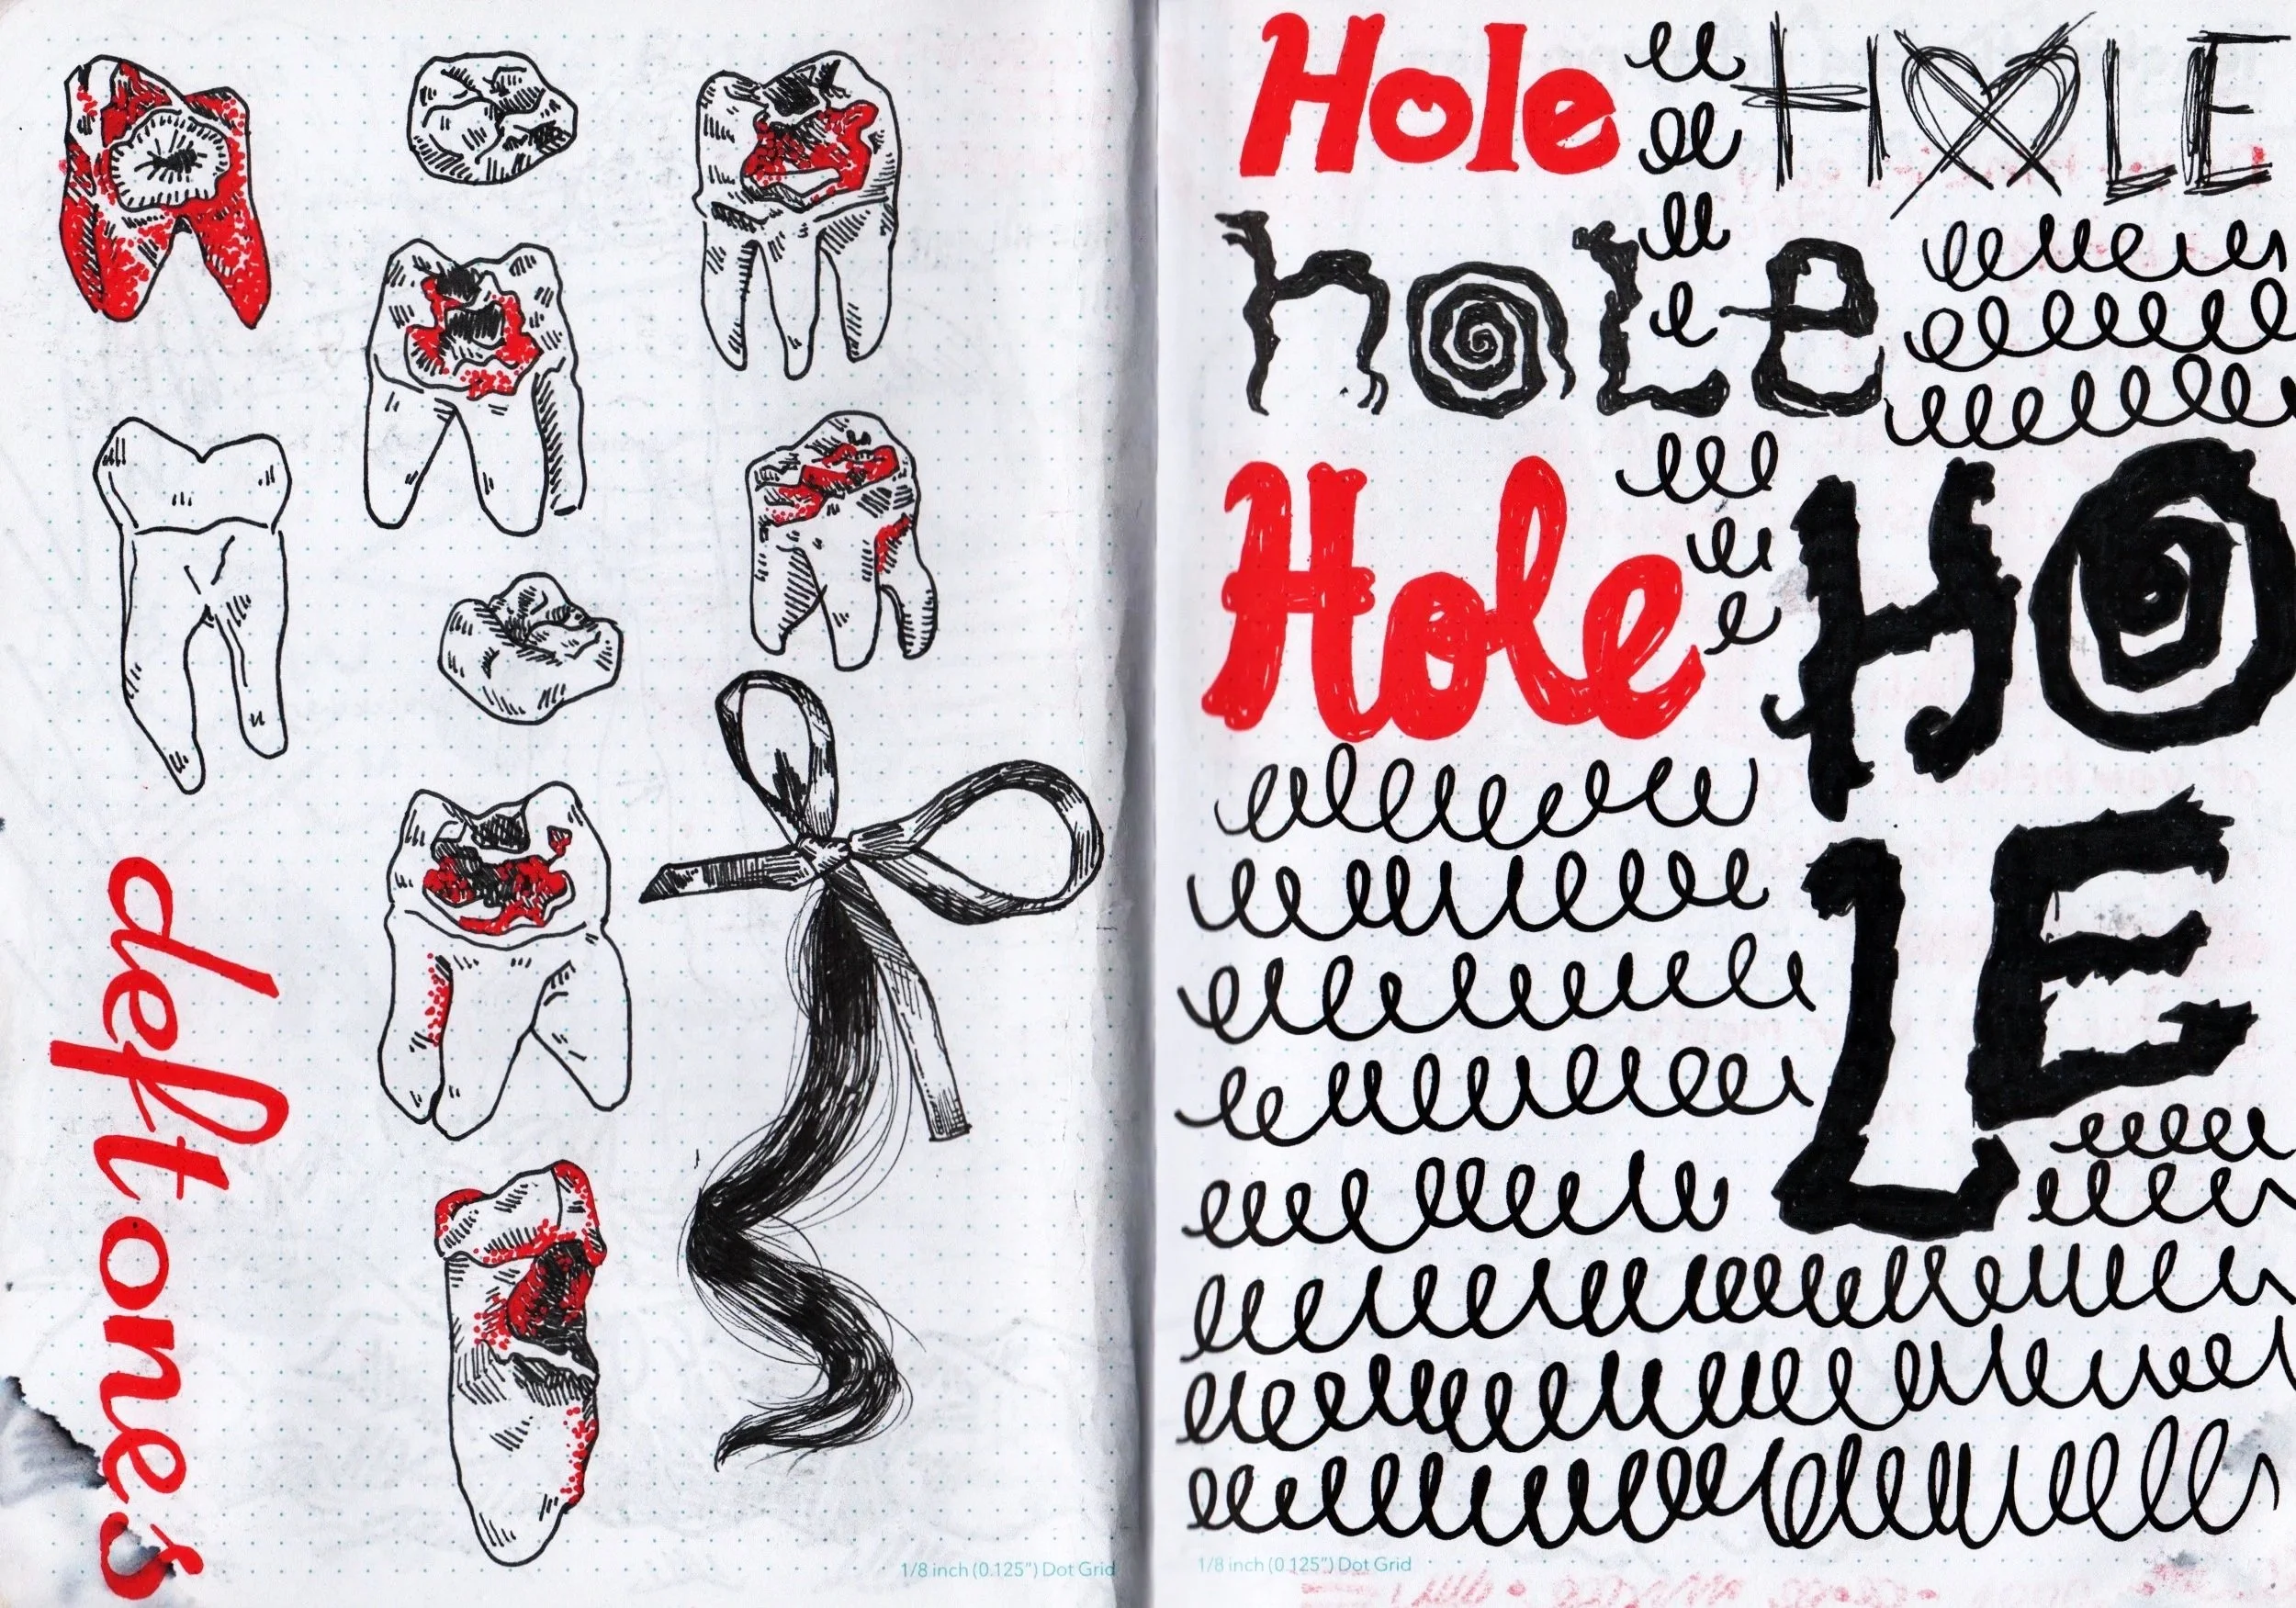 deftones
1/8 inch (0.125") Dot Grid
Hole
HOLE
hoLe
Hole
HO
LE
1/8 inch (0.125") Dot Grid